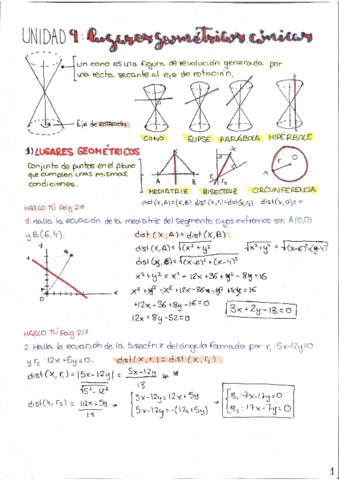 UNIDAD 9: Lugares geométricos. Cónicas
un cono es una figura de revolución generada por
una recta secante al eje de rotación.
Eje de rotación
CONO ELIPSE PARÁBOLA HIPÉRBOLE
1) LUGARES GEOMÉTRICOS
Conjunto de puntos en el plano
que cumplen unas mismas
condiciones.
MEDIATRIZ BISECTRIZ CIRCUNFERENCIA
dist(X,A)=dist(X,B) dist(X,r₁)=dist(X,r₂) dist(X,O)=r
HAZLO TÚ pág 216
1. Halla la ecuación de la mediatriz del segmento cuyos extremos son A(0,0)
y B(6,4).
dist(X,A) = dist(X,B)
dist(X,A) = √(x²+y²)
√x²+y² = √(x-6)²+(y-4)²
dist(X,B) = √(x-6)²+(y-4)²
x²+y² = x²-12x+36+y²-8y+16
+12x-36+8y-16=0
12x+8y-52=0
3x+2y-13=0
HAZLO TÚ pág 217
2. Halla la ecuación de la bisectriz del ángulo formado por r₁:5x-12y=0
y r₂:12x+5y=0.
dist(X,r₁) = dist(X,r₂)
dist(X,r₁) = |5x-12y| / √5²-12² = 5x-12y / 13
dist(X,r₂) = 12x+5y / 13 → {5x-12y=12x+5y → {B₁:7x-17y=0
5x-12y=-(12x+5y) B₂:17x-7y=0
1